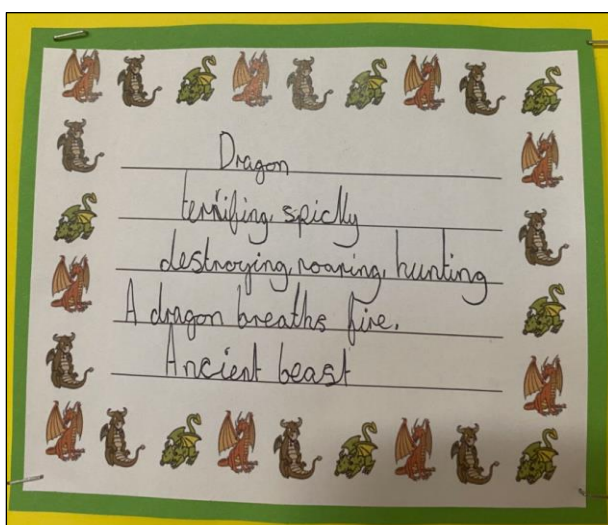 Dragon
terrifing, spickly
destroying, roaring, hunting
A dragon breaths fire.
Ancient beast